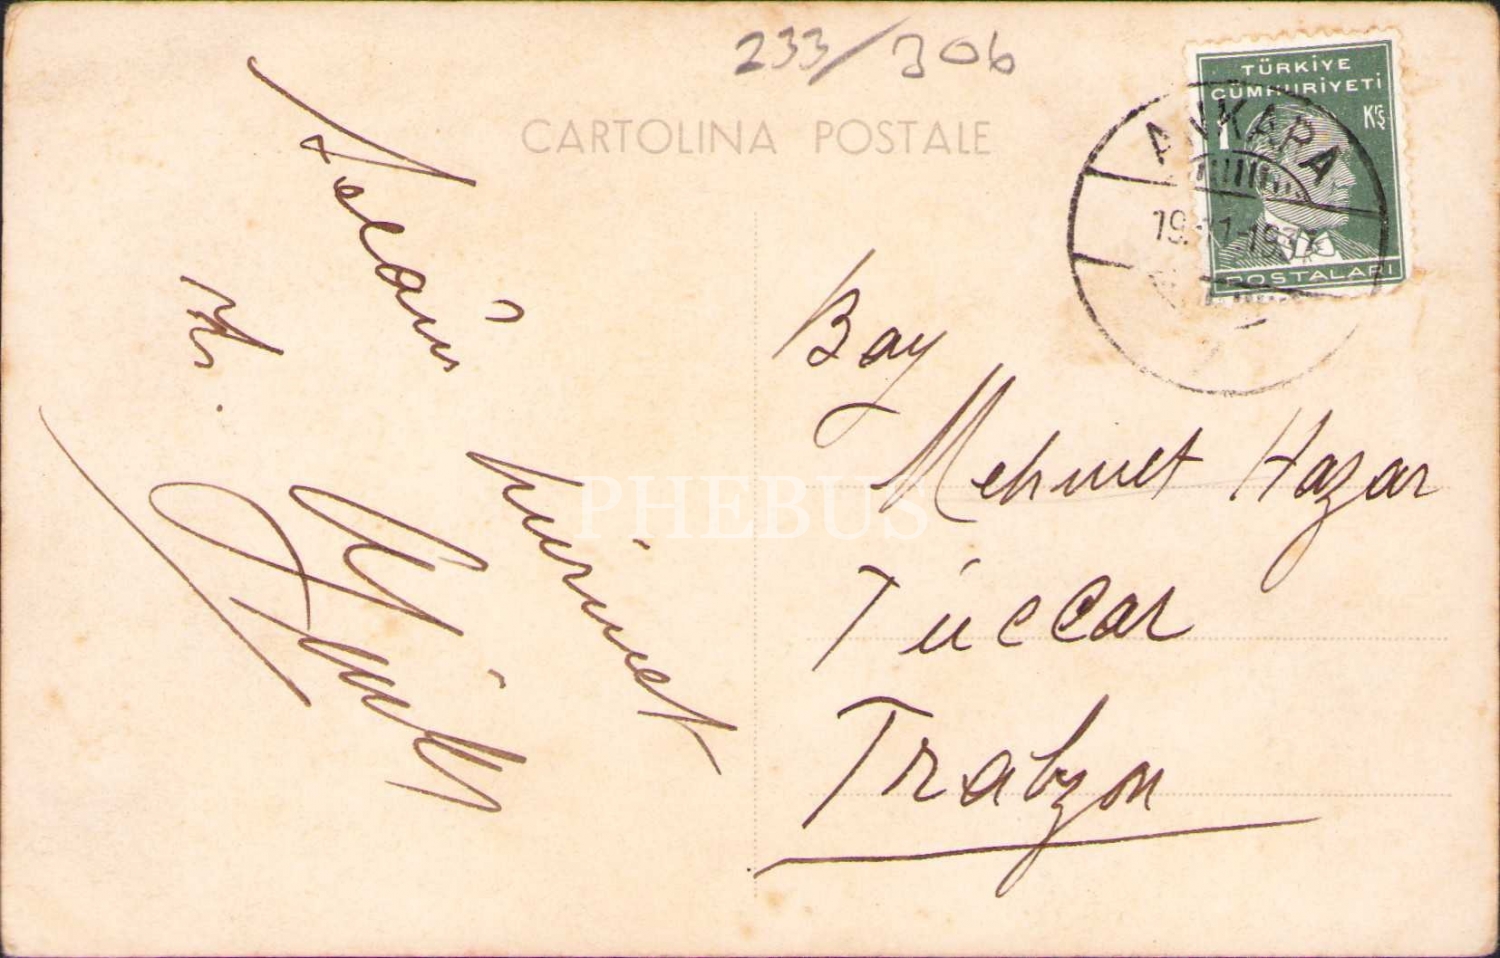 233/306
CARTOLINA POSTALE
TÜRKİYE
CÜMHURİYETİ
1 Krş
POSTALARI
ANKARA
19.11-1937
Selâm hürmet
Bay
Mehmet Hazar
Tüccar
Trabzon
PHEBUS